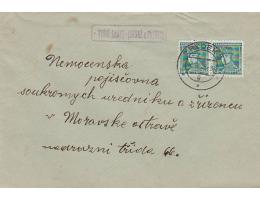 Nemocenska
pojišťovna
soukromych uredniku a zřizencu
v Moravske ostravě
nadrazni třida 66.